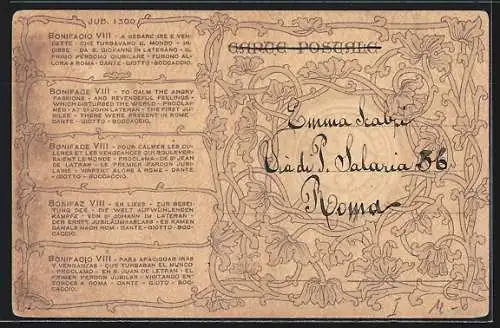 JUB. 1300
BONIFACIO VIII - A SEDARE IRE E VEN-
DETTE - CHE TURBAVANO IL MONDO - IN-
DISSE - DA S. GIOVANNI IN LATERANO - IL
PRIMO PERDONO GIUBILARE - FURONO AL-
LORA A ROMA - DANTE - GIOTTO - BOCCACCIO.
BONIFACE VIII - TO CALM THE ANGRY
PASSIONS - AND REVENGEFUL FEELINGS -
WHICH DISTURBED THE WORLD - PROCLAI-
MED - AT S. JOHN LATERAN - THE FIRST JU-
BILEE - THERE WERE PRESENT IN ROME
DANTE - GIOTTO - BOCCACCIO.
BONIFACE VIII - POUR CALMER LES CO-
LERES ET LES VENGEANCES QUI BOULEVER-
SAIENT LE MONDE - PROCLAMA - DE S. JEAN
DE LATRAN - LE PREMIER PARDON JUBI-
LAIRE - VINRENT ALORS À ROME - DANTE
- GIOTTO - BOCCACCIO.
BONIFAZ VIII - ER LIESS - ZUR BESEI-
TUNG DER - DIE WELT AUFWÜHLENDEN
KÄMPFE - VON ST JOHANN IM LATERAN -
DER ERSTE JUBILÄUMSABLASS - ES KAMEN
DAMALS NACH ROM - DANTE - GIOTTO - BOC-
CACCIO.
BONIFACIO VIII - PARA APACIGUAR IRAS
Y VENGANZAS - QUE TURBABAN EL MUNDO
- PROCLAMO - EN S. JUAN DE LETRAN - EL
PRIMER PERDON JUBILAR - VINIERON EN-
TONCES A ROMA - DANTE - GIOTTO - BOC-
CACCIO.
CARTE POSTALE
Emma
Via di P. Salaria 36
Roma